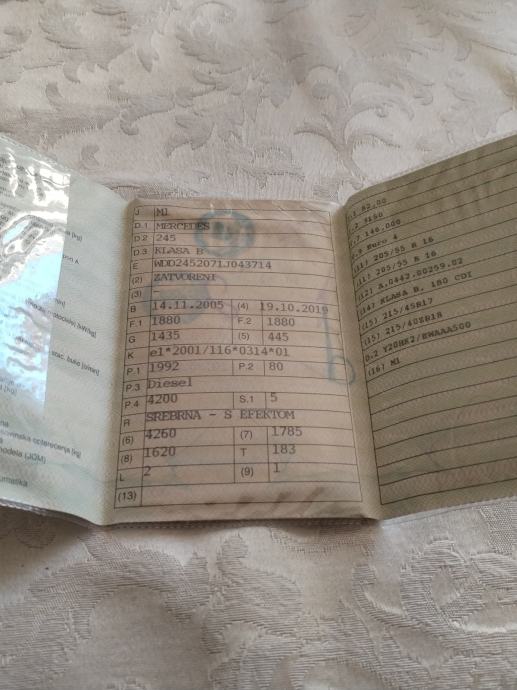 [kg]
on A
min]
modela) [kW/kg]
stac. buke [o/min]
ovinska opterećenja [kg]
modela (JOM)
omatika
J M1
D.1 MERCEDES
D.2 245
D.3 KLASA B
E WDD2452071J043714
(2) ZATVORENI
(3)
B 14.11.2005 (4) 19.10.2019
F.1 1880 F.2 1880
G 1435 (5) 445
K e1*2001/116*0314*01
P.1 1992 P.2 80
P.3 Diesel
P.4 4200 S.1 5
R SREBRNA - S EFEKTOM
(6) 4260 (7) 1785
(8) 1620 T 183
L 2 (9) 1
(13)
.1 82,00
.2 3150
.7 146,000
.9 Euro 4
(11) 205/55 R 16
(11) 205/55 R 16
(12) A.0442.00259.02
(14) KLASA B, 180 CDI
(15) 215/45R17
(15) 215/40ZR18
O.2 Y20HK2/BWAAA500
(16) M1